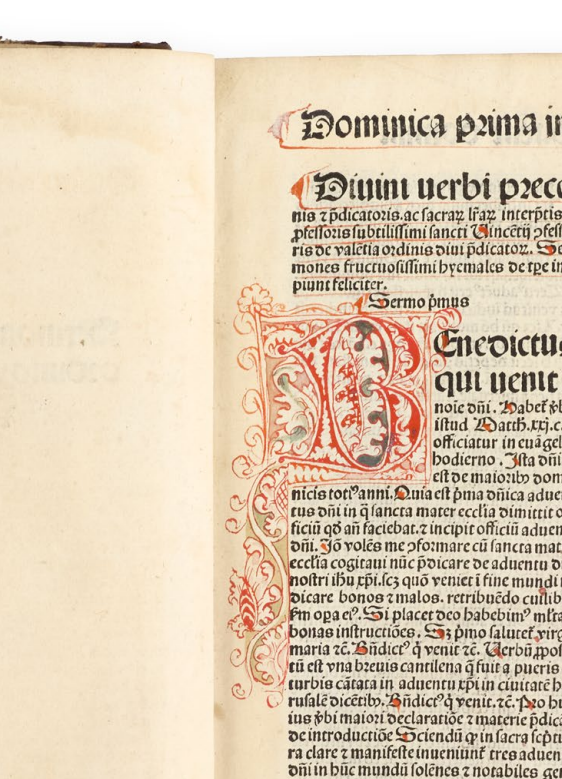 Dominica prima in
Diuini uerbi preco
nis ⁊ p̄dicatoris.ac sacraꝝ lr̄aꝝ interp̄tis
ꝓfessoris subtilissimi sancti Vincētij ꝯfess
ris de valētia ordinis diui p̄dicatoꝝ. Se
mones fructuosissimi hyemales de tp̄e in
piunt feliciter.
Sermo p̄mus
BEnedictus
qui uenit
noīe dn̄i. Habet̄ v̄b
istud Matth.xxj.c.
officiatur in euāgel
hodierno. Ista dn̄i
est de maioribꝰ dom
nicis totiꝰ anni. Quia est p̄ma dn̄ica aduen
tus dn̄i in q̄ sancta mater eccl̄ia dimittit o
ficiū qd̄ an̄ faciebat.⁊ incipit officiū aduen
dn̄i. Jō volēs me ꝯformare cū sancta mat
eccl̄ia cogitaui nūc p̄dicare de aduentu d
nostri ih̄u xp̄i.scꝫ quō veniet ī fine mundi
dicare bonos ⁊ malos. retribuēdo cuilib
ẜm oꝑa eiꝰ. Si placet deo habebimꝰ ml̄ta
bonas instructiōes. Sꝫ p̄mo salutet̄ virg
maria ⁊c. Bn̄dictꝰ q̄ venit ⁊c. Verbū ꝓpos
tū est vna breuis cantilena q̄ fuit a pueris
turbis cātata in aduentu xp̄i in ciuitatē h
rusalē dicētibꝰ. Bn̄dictꝰ q̄ venit.⁊c. Pro hu
ius v̄bi maiori declaratiōe ⁊ materie p̄dicā
de introductiōe Sciendū ꝙ in sacra scp̄tu
ra clare ⁊ manifeste inueniunt̄ tres aduen
dn̄i in hūc mundū solēnes ⁊ notabiles gen